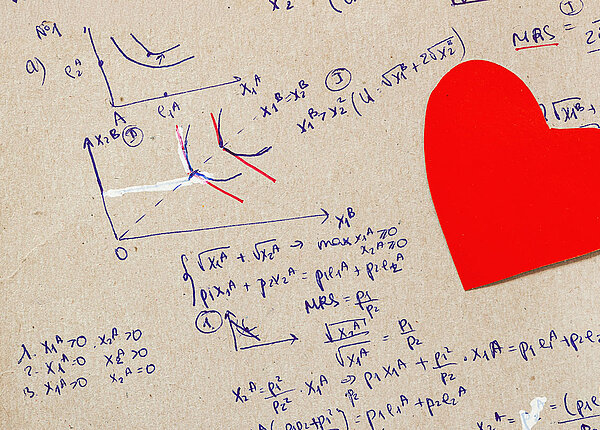 x₂
№1
MRS =
a)
e₂ᴬ
x₁ᴬ
e₁ᴬ
A
x₁ᴮ = x₂ᴮ
I
x₁ᴮ > x₂² (U: √x₁ᴮ + 2√x₂ᴮ)
√x₁ᴮ +
x₂ᴮ II
x₁ᴮ
O
√x₁ᴬ + √x₂ᴬ → max x₁ᴬ ≥ 0
x₂ᴬ ≥ 0
p₁x₁ᴬ + p₂x₂ᴬ = p₁e₁ᴬ + p₂e₂ᴬ
MRS = p₁/p₂
1.
√x₂ᴬ/√x₁ᴬ = p₁/p₂
1. x₁ᴬ > 0 x₂ᴬ > 0
2. x₁ᴬ = 0 x₂ᴬ > 0
3. x₁ᴬ > 0 x₂ᴬ = 0
x₂ᴬ = p₁²/p₂² · x₁ᴬ ⇒ p₁x₁ᴬ + p₁²/p₂ · x₁ᴬ = p₁e₁ᴬ + p₂e₂
(p₁p₂ + p₁²) = p₁e₁ᴬ + p₂e₂ᴬ
x₂ᴬ = = (p₁e₁